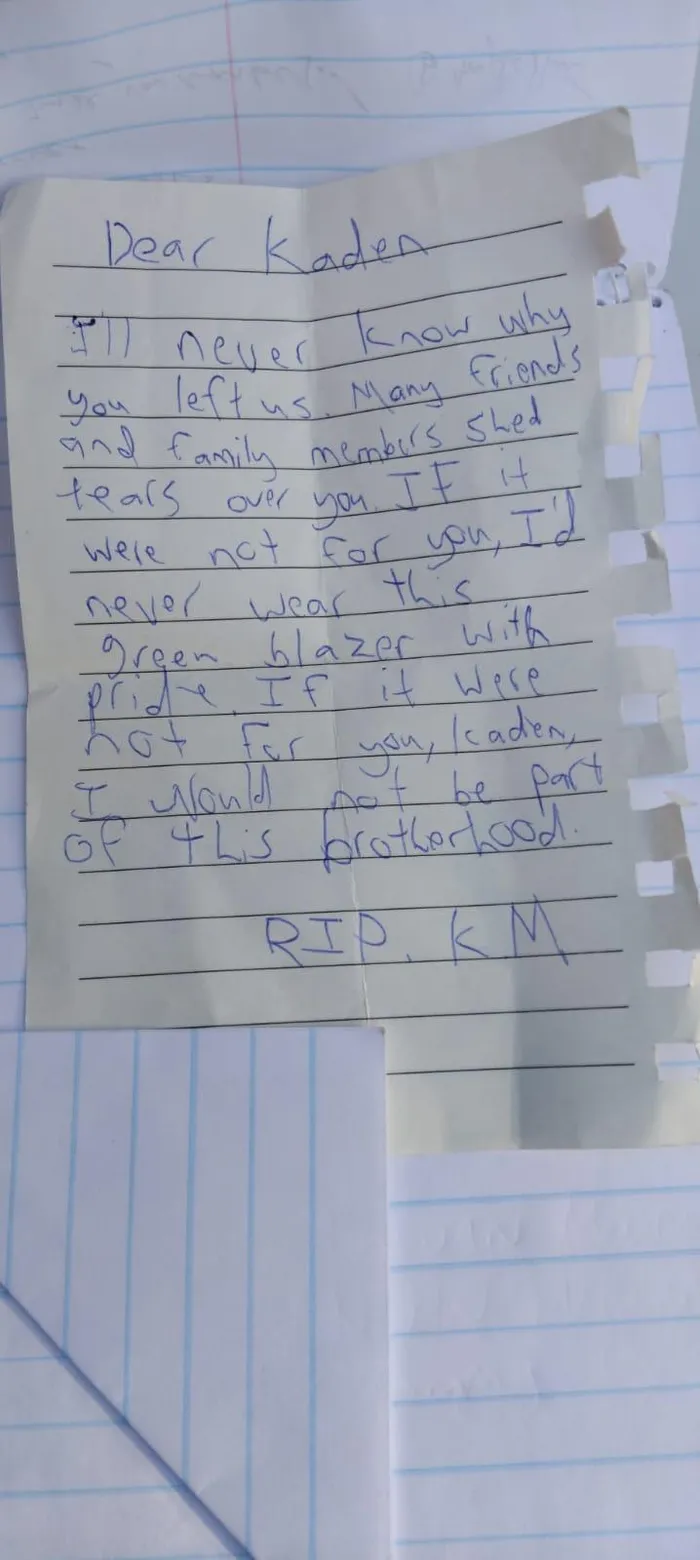 Dear Kaden
I'll never know why
you left us. Many friends
and family members shed
tears over you. IF it
were not for you, I'd
never wear this
green blazer with
pride. If it were
not for you, Kaden,
I would not be part
of this brotherhood.
RIP. KM